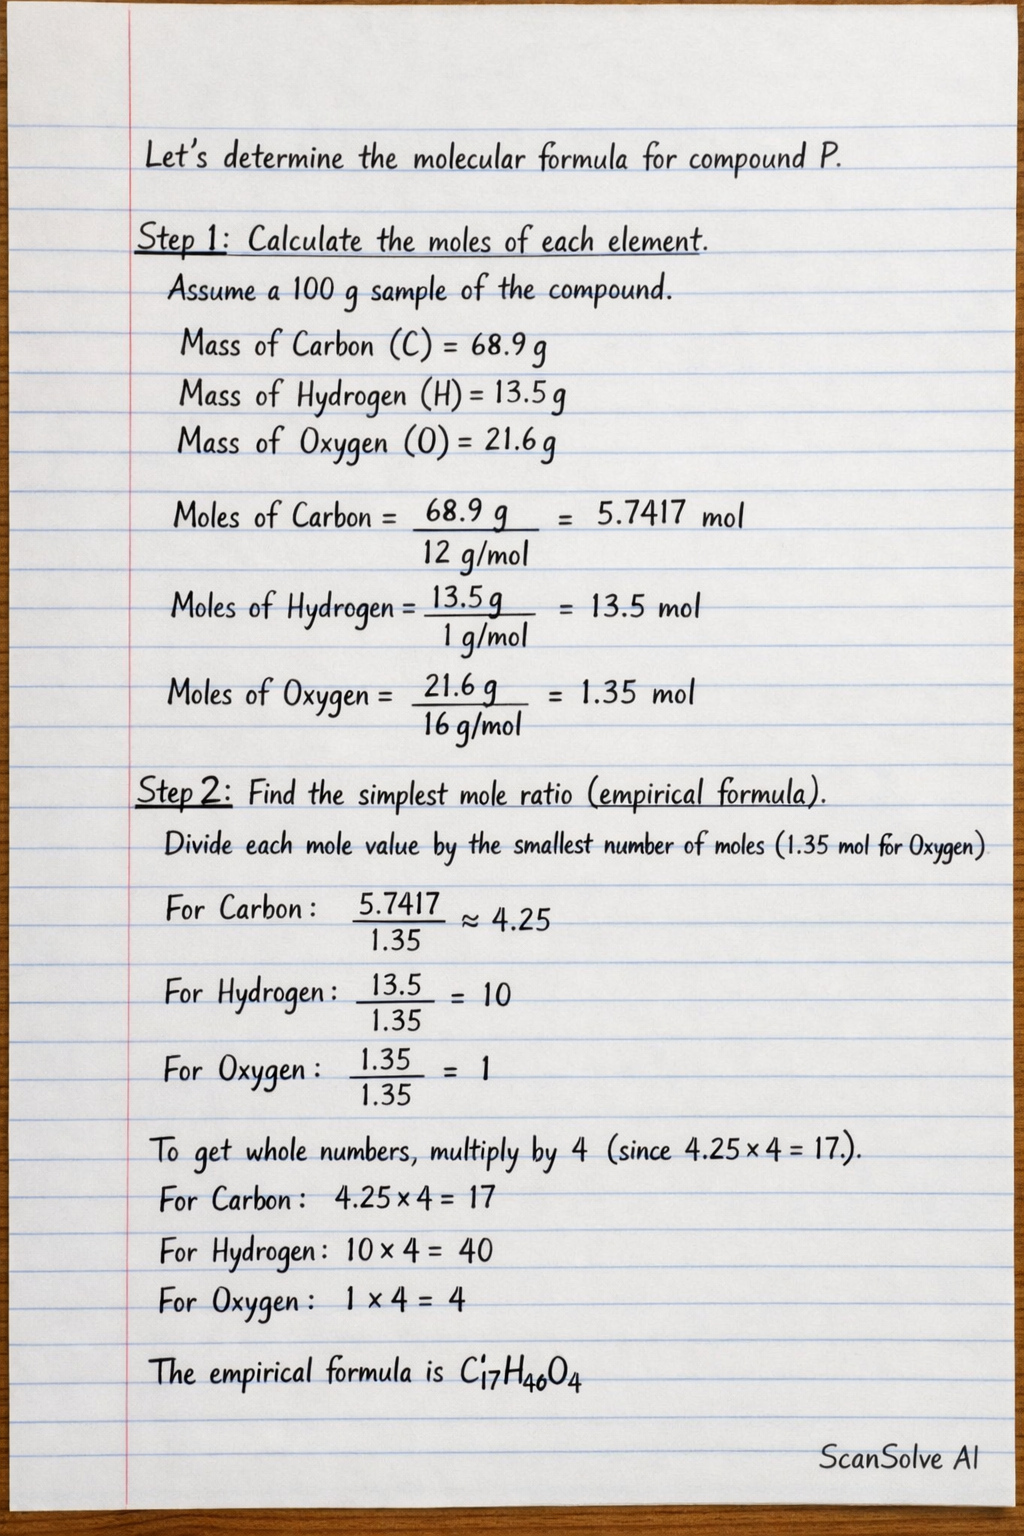 Let's determine the molecular formula for compound P.
Step 1: Calculate the moles of each element.
Assume a 100 g sample of the compound.
Mass of Carbon (C) = 68.9 g
Mass of Hydrogen (H) = 13.5 g
Mass of Oxygen (O) = 21.6 g
Moles of Carbon = 68.9 g / 12 g/mol = 5.7417 mol
Moles of Hydrogen = 13.5 g / 1 g/mol = 13.5 mol
Moles of Oxygen = 21.6 g / 16 g/mol = 1.35 mol
Step 2: Find the simplest mole ratio (empirical formula).
Divide each mole value by the smallest number of moles (1.35 mol for Oxygen)
For Carbon: 5.7417 / 1.35 ≈ 4.25
For Hydrogen: 13.5 / 1.35 = 10
For Oxygen: 1.35 / 1.35 = 1
To get whole numbers, multiply by 4 (since 4.25 × 4 = 17.).
For Carbon: 4.25 × 4 = 17
For Hydrogen: 10 × 4 = 40
For Oxygen: 1 × 4 = 4
The empirical formula is C₁₇H₄₀O₄
ScanSolve AI